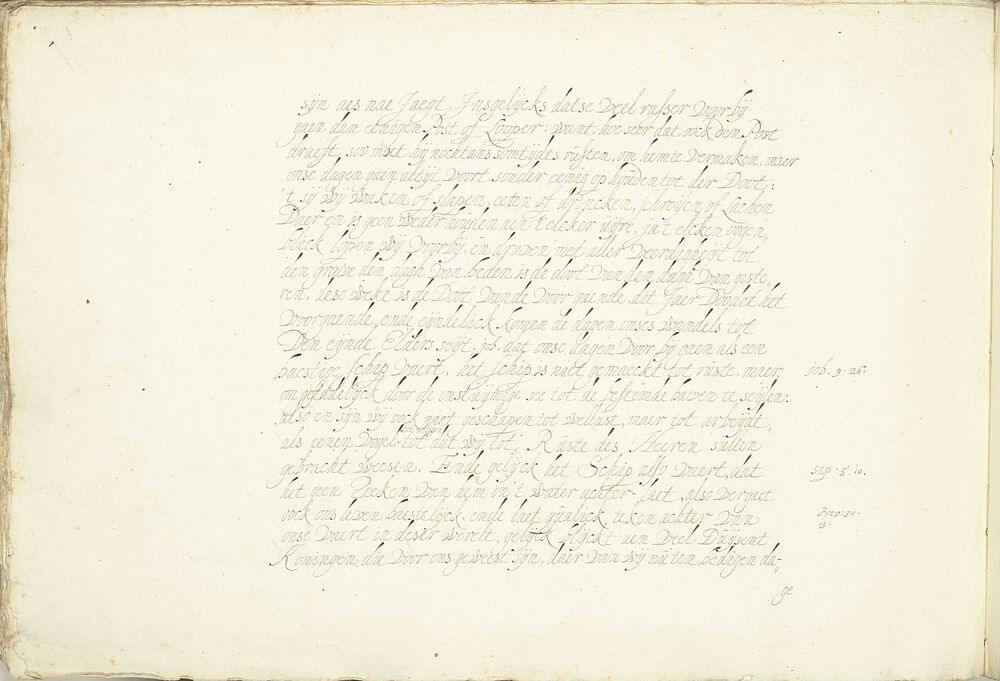 sijn aes nae Jaegt. Insgelijcks datse veel rasser voor bij
gaen dan eenigen Post of Looper: want, hoe seer dat oock den Post
draeft, soo moet hij nochtans somtijdts rusten, om hem te vermaken, maer
onse dagen gaen altijt voort sonder eenig op houden tot der Doot;
't sij wij waken of slapen, eeten of drincken, schreijen of Lachen
Daer en is geen weder houden aen 't elcker uijre, ja 't elcken oogen
blick loopen wij voorbij, en draven met aller veerdigheijt tot
den grave den dagh van heden is de doot van den dagh van giste
ren, dese weke is de Doot vande voor gaende, dit Jaer Doodet het
voorgaende, ende eijndelick komen de dagen onses wandels tot
Den eijnde. Elders seijt Job. dat onse dagen voor bij gaen als een
haestige Schip vaert, het schip is niet gemaeckt tot ruste, maer,
om gestadelijck door de onstuijmige see tot de bestemde haven te seijlen:
also en sijn wij oock niet geschapen tot wellust, maer tot arbeijdt,
als eenen vogel tot dat wij tot Ruste des Heeren sullen
gebracht weesen. Ende gelijck het Schip also vaert, dat
het geen Teeken van hem in't water achter-laet, also vergaet
oock ons leven haestelijck, ende laet qualick teken achter van
onse vaert in deser werelt, gelijck blijckt aen veel Duijsent
Koningen, die voor ons geweest sijn, daer van wij nu ten hedigen da-
ge
job. 9. 26.
Sap. 5. 10.
Prov: 30.
19.